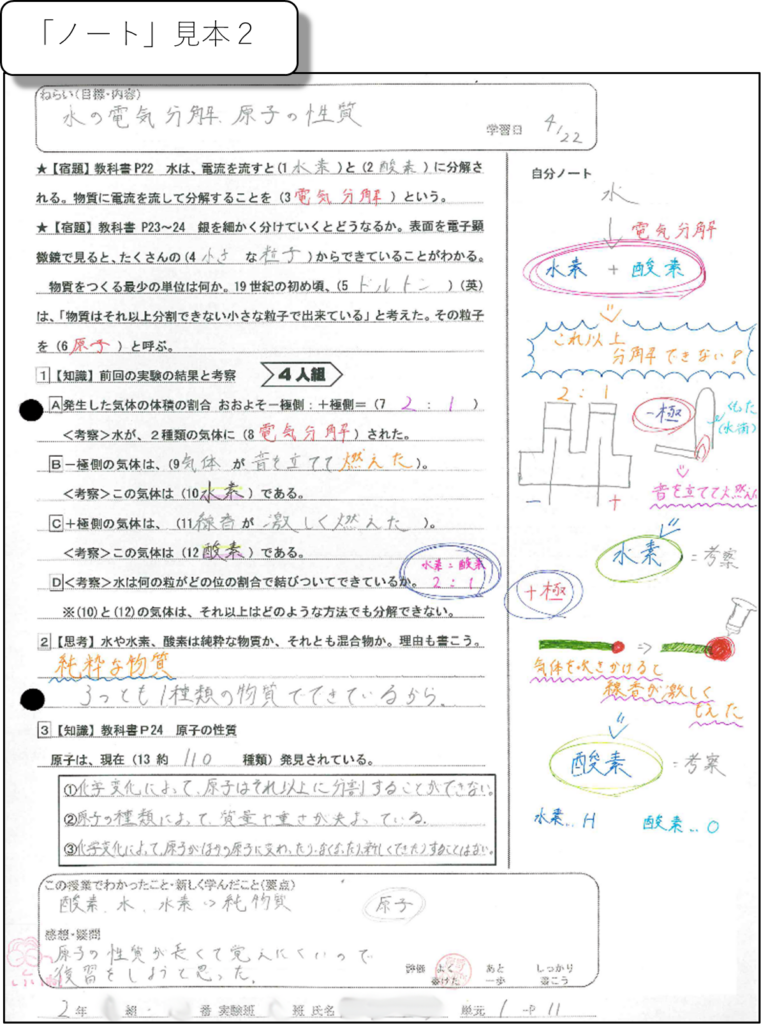 「ノート」見本２
ねらい（目標・内容）
水の電気分解、原子の性質
学習日 4/22
★【宿題】教科書P22　水は、電流を流すと（1 水素 ）と（2 酸素 ）に分解さ
れる。物質に電流を流して分解することを（3 電気分解 ）という。
★【宿題】教科書 P23～24　銀を細かく分けていくとどうなるか。表面を電子顕
微鏡で見ると、たくさんの（4 小さ な 粒子 ）からできていることがわかる。
物質をつくる最少の単位は何か。19世紀の初め頃、（5 ドルトン ）（英）
は、「物質はそれ以上分割できない小さな粒子で出来ている」と考えた。その粒子
を（6 原子 ）と呼ぶ。
1【知識】前回の実験の結果と考察　４人組
A発生した気体の体積の割合 おおよそ－極側：＋極側＝（7 2 : 1 ）
＜考察＞水が、２種類の気体に（8 電気分解 ）された。
B－極側の気体は、（9 気体 が 音を立てて燃えた ）。
＜考察＞この気体は（10 水素 ）である。
C＋極側の気体は、（11 線香が 激しく燃えた ）。
＜考察＞この気体は（12 酸素 ）である。
D＜考察＞水は何の粒がどの位の割合で結びついてできているか。
水素：酸素
2 : 1
※(10)と(12)の気体は、それ以上はどのような方法でも分解できない。
2【思考】水や水素、酸素は純粋な物質か、それとも混合物か。理由も書こう。
純粋な物質
3つとも1種類の物質でできているから。
3【知識】教科書P24　原子の性質
原子は、現在（13 約 110 種類）発見されている。
①化学変化によって、原子はそれ以上に分割することができない。
②原子の種類によって、質量や重さが決まっている。
③化学変化によって、原子がほかの原子に変わったり、なくなったり、新しくできたりすることはない。
この授業でわかったこと・新しく学んだこと（要点）
酸素、水、水素⇒純物質　原子
感想・疑問
原子の性質が長くて覚えにくいので
復習をしようと思った。
評価　よく書けた　あと一歩　しっかり書こう
2年　組　番 実験班　班 氏名　単元 1 -P 11
自分ノート
水
電気分解
水素 + 酸素
これ以上
分解できない？
2 : 1
－極
－ ＋
音を立てて燃えた
水素 = 考察
＋極
気体を吹きかけると
線香が激しく
もえた
酸素 = 考察
水素…H　酸素…O